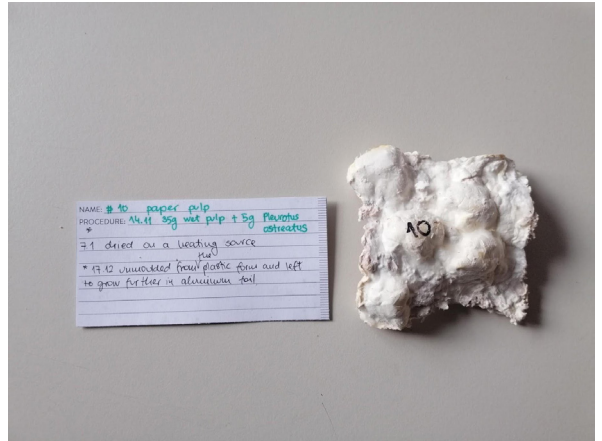 NAME: # 10 paper pulp
PROCEDURE: 14.11 35g wet pulp + 5g Pleurotus
* ostreatus
7.1 dried on a heating source
the
* 17.12 unmolded from plastic form and left
to grow further in aluminum foil
10